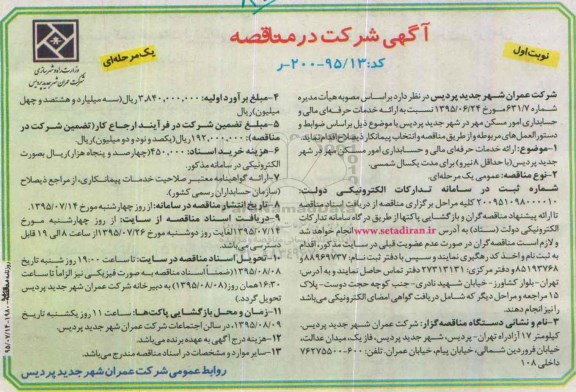 آگهی شرکت در مناقصه
کد: ۹۵/۱۳-۲۰۰-ر
نوبت اول
یک مرحله‌ای
وزارت راه و شهرسازی
شرکت عمران شهر جدید پردیس
شرکت عمران شهر جدید پردیس در نظر دارد براساس مصوبه هیأت مدیره
شماره ۶۳۱/۷ مورخ ۱۳۹۵/۰۶/۲۴ نسبت به ارائه خدمات حرفه‌ای مالی و
حسابداری امور مسکن مهر در شهر جدید پردیس با موضوع ذیل براساس ضوابط و
دستورالعمل‌های مربوطه و از طریق مناقصه و انتخاب پیمانکار ذیصلاح اقدام نماید.
۱-موضوع: ارائه خدمات حرفه‌ای مالی و حسابداری امور مسکن مهر در شهر
جدید پردیس (با حداقل ۸ نیرو) برای مدت یکسال شمسی.
۲-نوع مناقصه: عمومی یک مرحله‌ای
شماره ثبت در سامانه تدارکات الکترونیکی دولت:
۲۰۰۹۵۱۰۹۸۰۰۰۰۱۰ کلیه مراحل برگزاری مناقصه از دریافت اسناد مناقصه
تا ارائه پیشنهاد مناقصه گران و بازگشایی پاکتها از طریق درگاه سامانه تدارکات
الکترونیکی دولت (ستاد) به آدرس www.setadiran.ir انجام خواهد شد
و لازم است مناقصه گران در صورت عدم عضویت قبلی در سایت مذکور، اقدام
به ثبت نام و اخذ کد رهگیری نمایند و سپس با دفتر ثبت نام: ۸۸۹۶۹۷۳۷ و
۸۵۱۹۳۷۶۸ و دفتر مرکزی: ۲۷۳۱۳۱۳۱ دفتر تماس حاصل نمایند و به آدرس:
تهران- بلوار کشاورز- خیابان شهید نادری- جنب کوچه حجت دوست- پلاک
۱۵ مراجعه و مراحل دیگر که شامل دریافت گواهی امضای الکترونیکی می‌باشد
را نیز انجام دهند.
۳-نام و نشانی دستگاه مناقصه گزار: شرکت عمران شهر جدید پردیس.
کیلومتر ۱۷ آزادراه تهران - پردیس، شهر جدید پردیس، فاز یک، میدان عدالت،
خیابان فروردین شمالی، خیابان پیام، خیابان عمران. تلفن: ۶۰۰-۷۶۲۷۵۵۰۰
داخلی ۱۰۸
۴-مبلغ برآورد اولیه: ۳,۸۴۰,۰۰۰,۰۰۰ ریال (سه میلیارد و هشتصد و چهل
میلیون) ریال.
۵-مبلغ تضمین شرکت در فرآیند ارجاع کار (تضمین شرکت در
مناقصه): ۱۹۲,۰۰۰,۰۰۰ ریال (یکصد و نود و دو میلیون) ریال.
۶-هزینه خرید اسناد: ۴۵۰,۰۰۰ (چهارصد و پنجاه هزار) ریال بصورت
الکترونیکی در سامانه مذکور.
۷-ارائه گواهینامه معتبر صلاحیت خدمات پیمانکاری، از مراجع ذیصلاح
(سازمان حسابداران رسمی کشور).
۸-تاریخ انتشار مناقصه در سامانه: از روز چهارشنبه مورخ ۱۳۹۵/۰۷/۱۴.
۹-دریافت اسناد مناقصه از سایت: از روز چهارشنبه مورخ
۱۳۹۵/۰۷/۱۴ لغایت روز دوشنبه مورخ ۱۳۹۵/۰۷/۲۶ از ساعت ۸ الی ۱۹ قابل
دسترسی می‌باشد.
۱۰-تحویل اسناد مناقصه در سایت: تا ساعت ۱۹:۰۰ روز شنبه تاریخ
۱۳۹۵/۰۸/۰۸ (ضمناً اسناد مناقصه به صورت فیزیکی نیز الزاماً تا ساعت
۱۶:۳۰ همان روز (۱۳۹۵/۰۸/۰۸) به دبیرخانه شرکت عمران شهر جدید پردیس
تحویل گردد.)
۱۱-زمان و محل بازگشایی پاکت‌ها: ساعت ۱۱ روز یکشنبه تاریخ
۱۳۹۵/۰۸/۰۹، در سالن اجتماعات شرکت عمران شهر جدید پردیس.
۱۲-هزینه درج آگهی به عهده برنده می‌باشد.
۱۳-سایر موارد و مشخصات در اسناد مناقصه مندرج می‌باشد.
روابط عمومی شرکت عمران شهر جدید پردیس